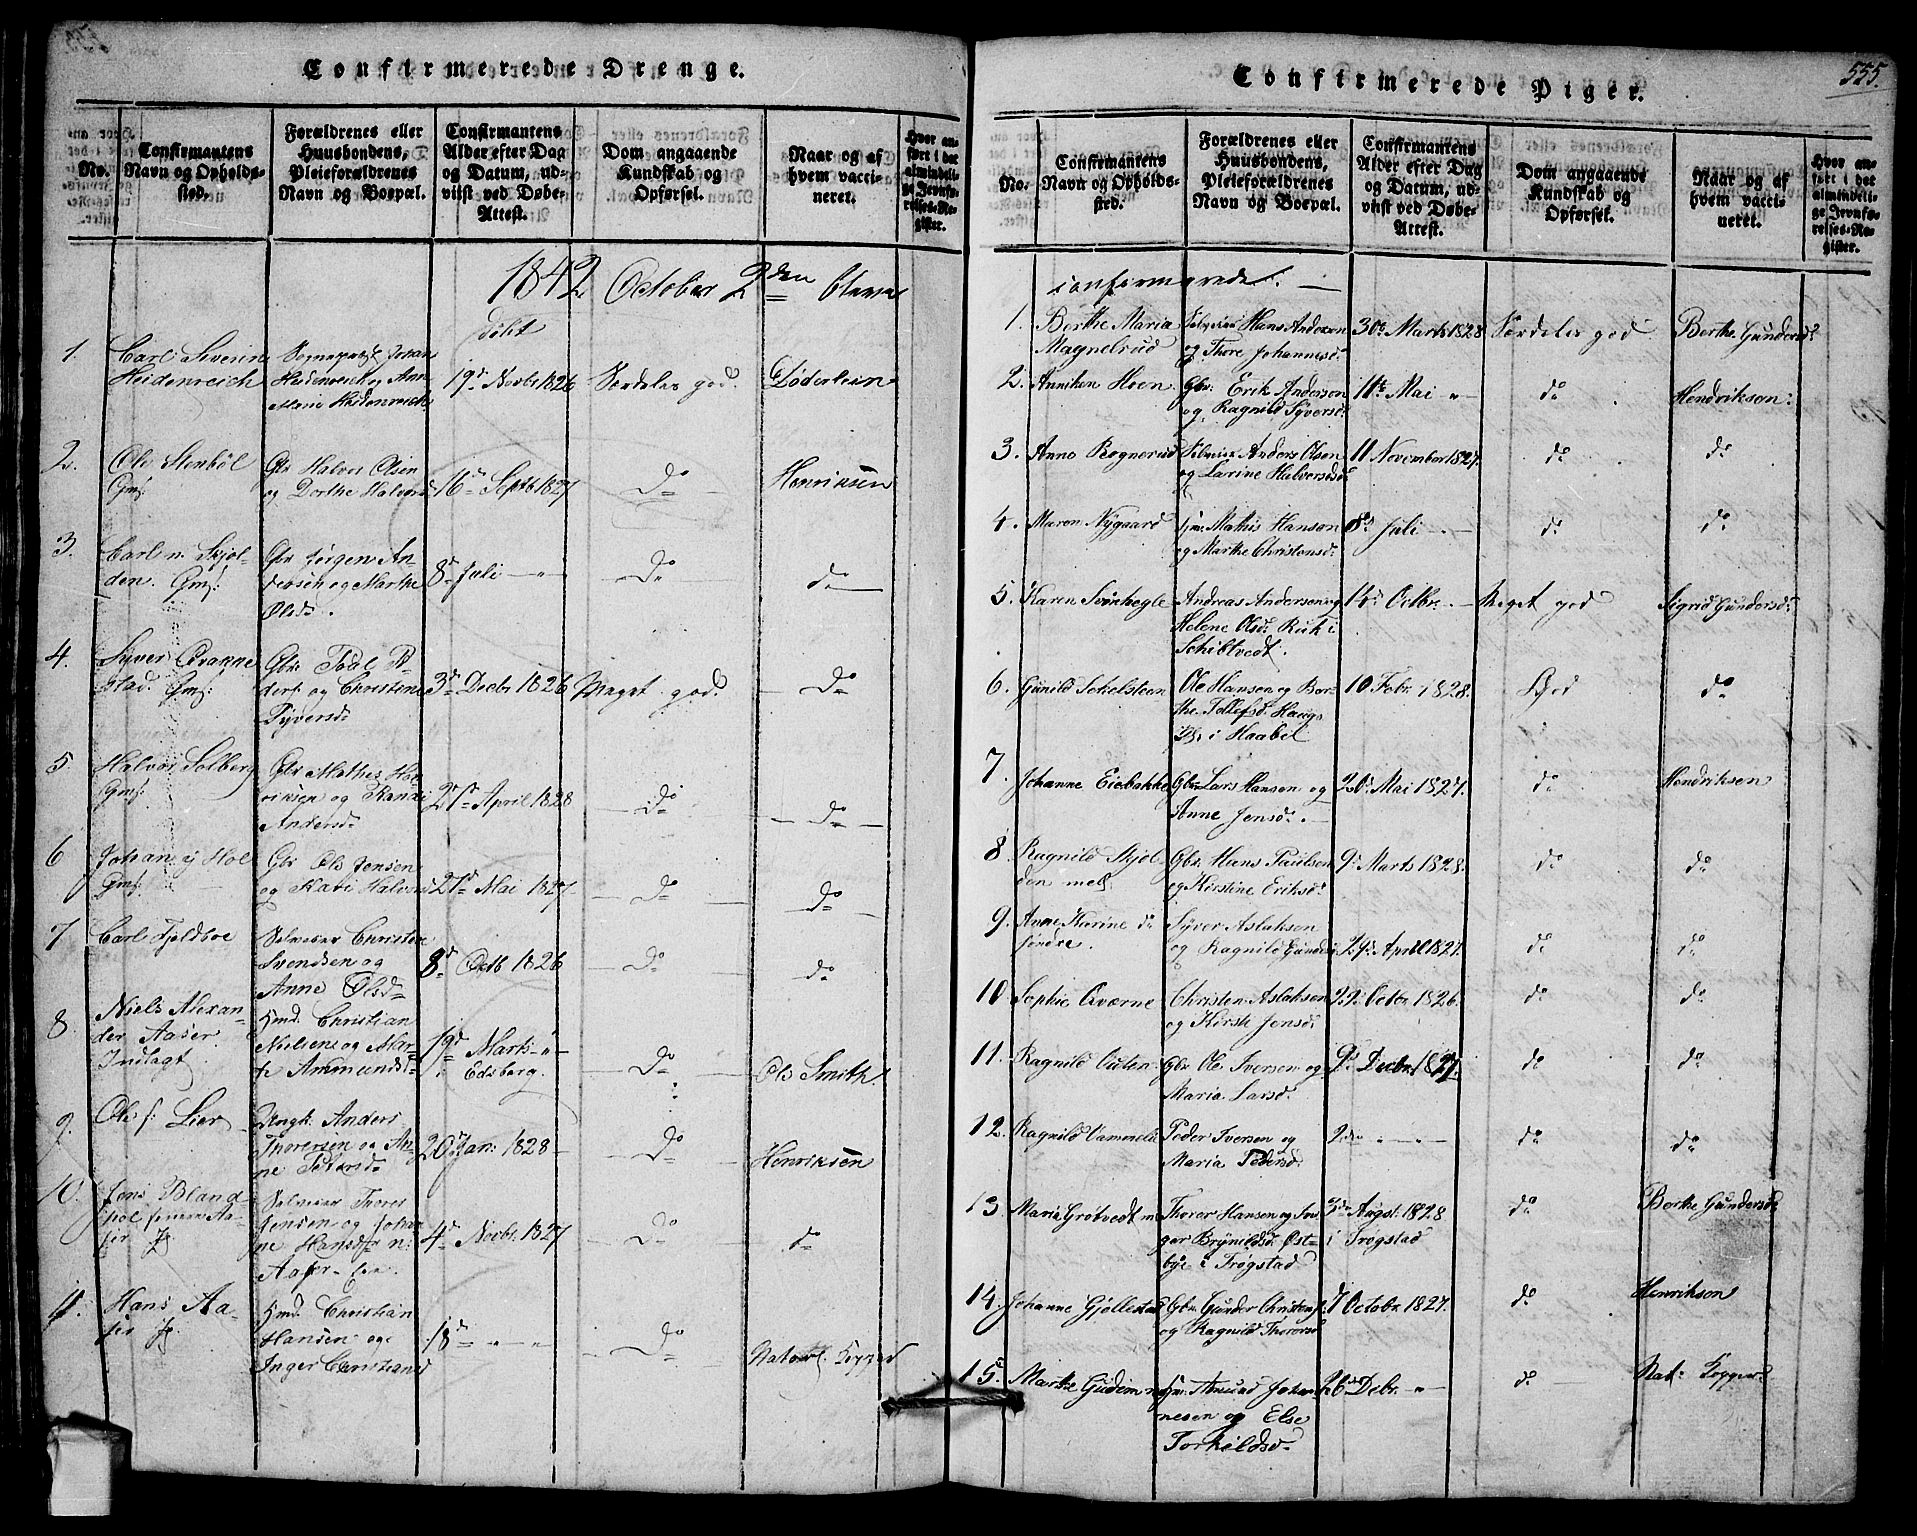 Confirmerede Drenge.
No.
Confirmantens
Navn og Opholds-
sted.
Forældrenes eller
Huusbondens,
Pleieforældrenes
Navn og Boepæl.
Confirmantens
Alder efter Dag
og Datum, ud-
viist ved Døbe-
Attest.
Dom angaaende
Kundskab og
Opførsel.
Naar og af
hvem vacci-
neret.
Hvor an-
ført i det
almindeli-
ge Jevnfø-
relses-Re-
gister.
1842 October 2den bleve
døbt
1.
Carl Severin
Heidenreich
Johan
Heidenreich og Ann
Marie Heidenreich
19d Novbr 1826
Særdeles god.
Døderlein
2.
Ole Stenbøl
Gmf.
Gbr Halvor Olsen
og Dorthe Halvorsd
16d Septb 1827
do
Henriksen
3.
Carl n. Skjol-
den. Gmf.
Gbr Jørgen An-
dersen og Marthe
Olsd.
8d Juli "
do
do
4.
Syver
stad. Gmf.
Gbr
og Christine
Syversd
3d Decbr 1826
Meget god
do
5.
Halvor Solberg
Gmf.
Gbr Mathes Hen-
riksen og Randi
Andersd.
21d April 1828
do
do
6
Johan Hol
Gmf.
Gbr Ole Jensen
og Kari Halvorsd
27d Mai 1827
do
do
7
Carl Fjeldboe
Selveier Christen
Svendsen og
Anne Olsd
8d Octb 1826
do
do
8.
Niels Alexan-
der Aaser.
Indlagt
Hmd. Christian
Nielsen og Mar-
the Ammundsd
19d Marts "
i Edsberg.
do
Ole Smith
9.
Ole Lier
Ungk. Anders
Thoresen og An-
ne Pedersd
20d Jan: 1828
do
Henriksen
10.
Jens Bland-
pol Aa-
ser
Selveier Thorer
Jensen og Johan
ne Hansd n:
Aaser
4d Novbr. 1827
do
do
11.
Hans Aa-
ser
Hmd. Christian
Hansen og
Inger Christiansd
18d " "
do
Naturl. Kopper
555.
Confirmerede Piger.
No.
Confirmantens
Navn og Opholds-
sted.
Forældrenes eller
Huusbondens,
Pleieforældrenes
Navn og Boepæl.
Confirmantens
Alder efter Dag
og Datum, ud-
viist ved Døbe-
Attest.
Dom angaaende
Kundskab og
Opførsel.
Naar og af
hvem vacci-
neret.
Hvor an-
ført i det
almindeli-
ge Jevnfø-
relses-Re-
gister.
confirmerede.
1.
Berthe Maria
Magnelrud
Hans Andersen
og Thore Johannesd.
30d Marts 1828
Særdeles god
Berthe Gundersd.
2.
Anniken Hoen
Gbr. Erik Andersen
og Ragnild Syversd.
11te Mai "
do
Hendriksen.
3.
Anne Rognerud
Selveier Anders Olsen
og Larine Halvorsd.
11 November 1827.
do
do
4.
Maren Nygaard
Hm. Mathis Hansen
og Marthe Christensd.
8d Juli "
do
do
5.
Karen Svinhegle
Andreas Andersen og
Helene Olsd. Ruk i
Schibtvedt.
14d Octbr.
Meget god
Sigrid Gundersd.
6.
Gunild Sekelsteen
Ole Hansen og Ber-
the Tollefsd. Haugs
i Haabøl
10 Febr. 1828.
God
do
7.
Johanne Eiebakke
Gbr. Lars Hansen og
Anne Jensd.
20d Mai 1827.
do
Hendriksen
8
Ragnild Skjol-
den mel.
Gbr. Hans Paulsen
og Kirstine Eriksd.
9d Marts 1828.
do
do
9.
Anne Karine do
søndre.
Syver Aslaksen
og Ragnild Gunders
29d April 1827.
do
do
10
Sophie Qværne
Christen Aslaksen
og Kirsti Jensd.
29d Octbr. 1826.
do
do
11.
Ragnild Outen
Gbr. Ole Iversen og
Maria Larsd.
9d Decbr. 1827.
do
do
12.
Ragnild Vammeli
Peder Iversen og
Maria Pedersd.
2den " "
do
do
13.
Maria Grøtvedt
Thorer Hansen og In-
ger Brynildsd. Øst-
bye i Trøgstad
3de Augst. 1828
i Trøgstad
do
Berthe Gundersd.
14.
Johanne Gjøllestad
Gbr. Gunder Christens.
og Ragnild Thorersd
7 Octobr. 1827.
do
Henriksen
15.
Marthe Gudim
Hm. Amund Johan-
nesen og Else
Torkildsd.
26d Debr. "
do
Nat: Kopper